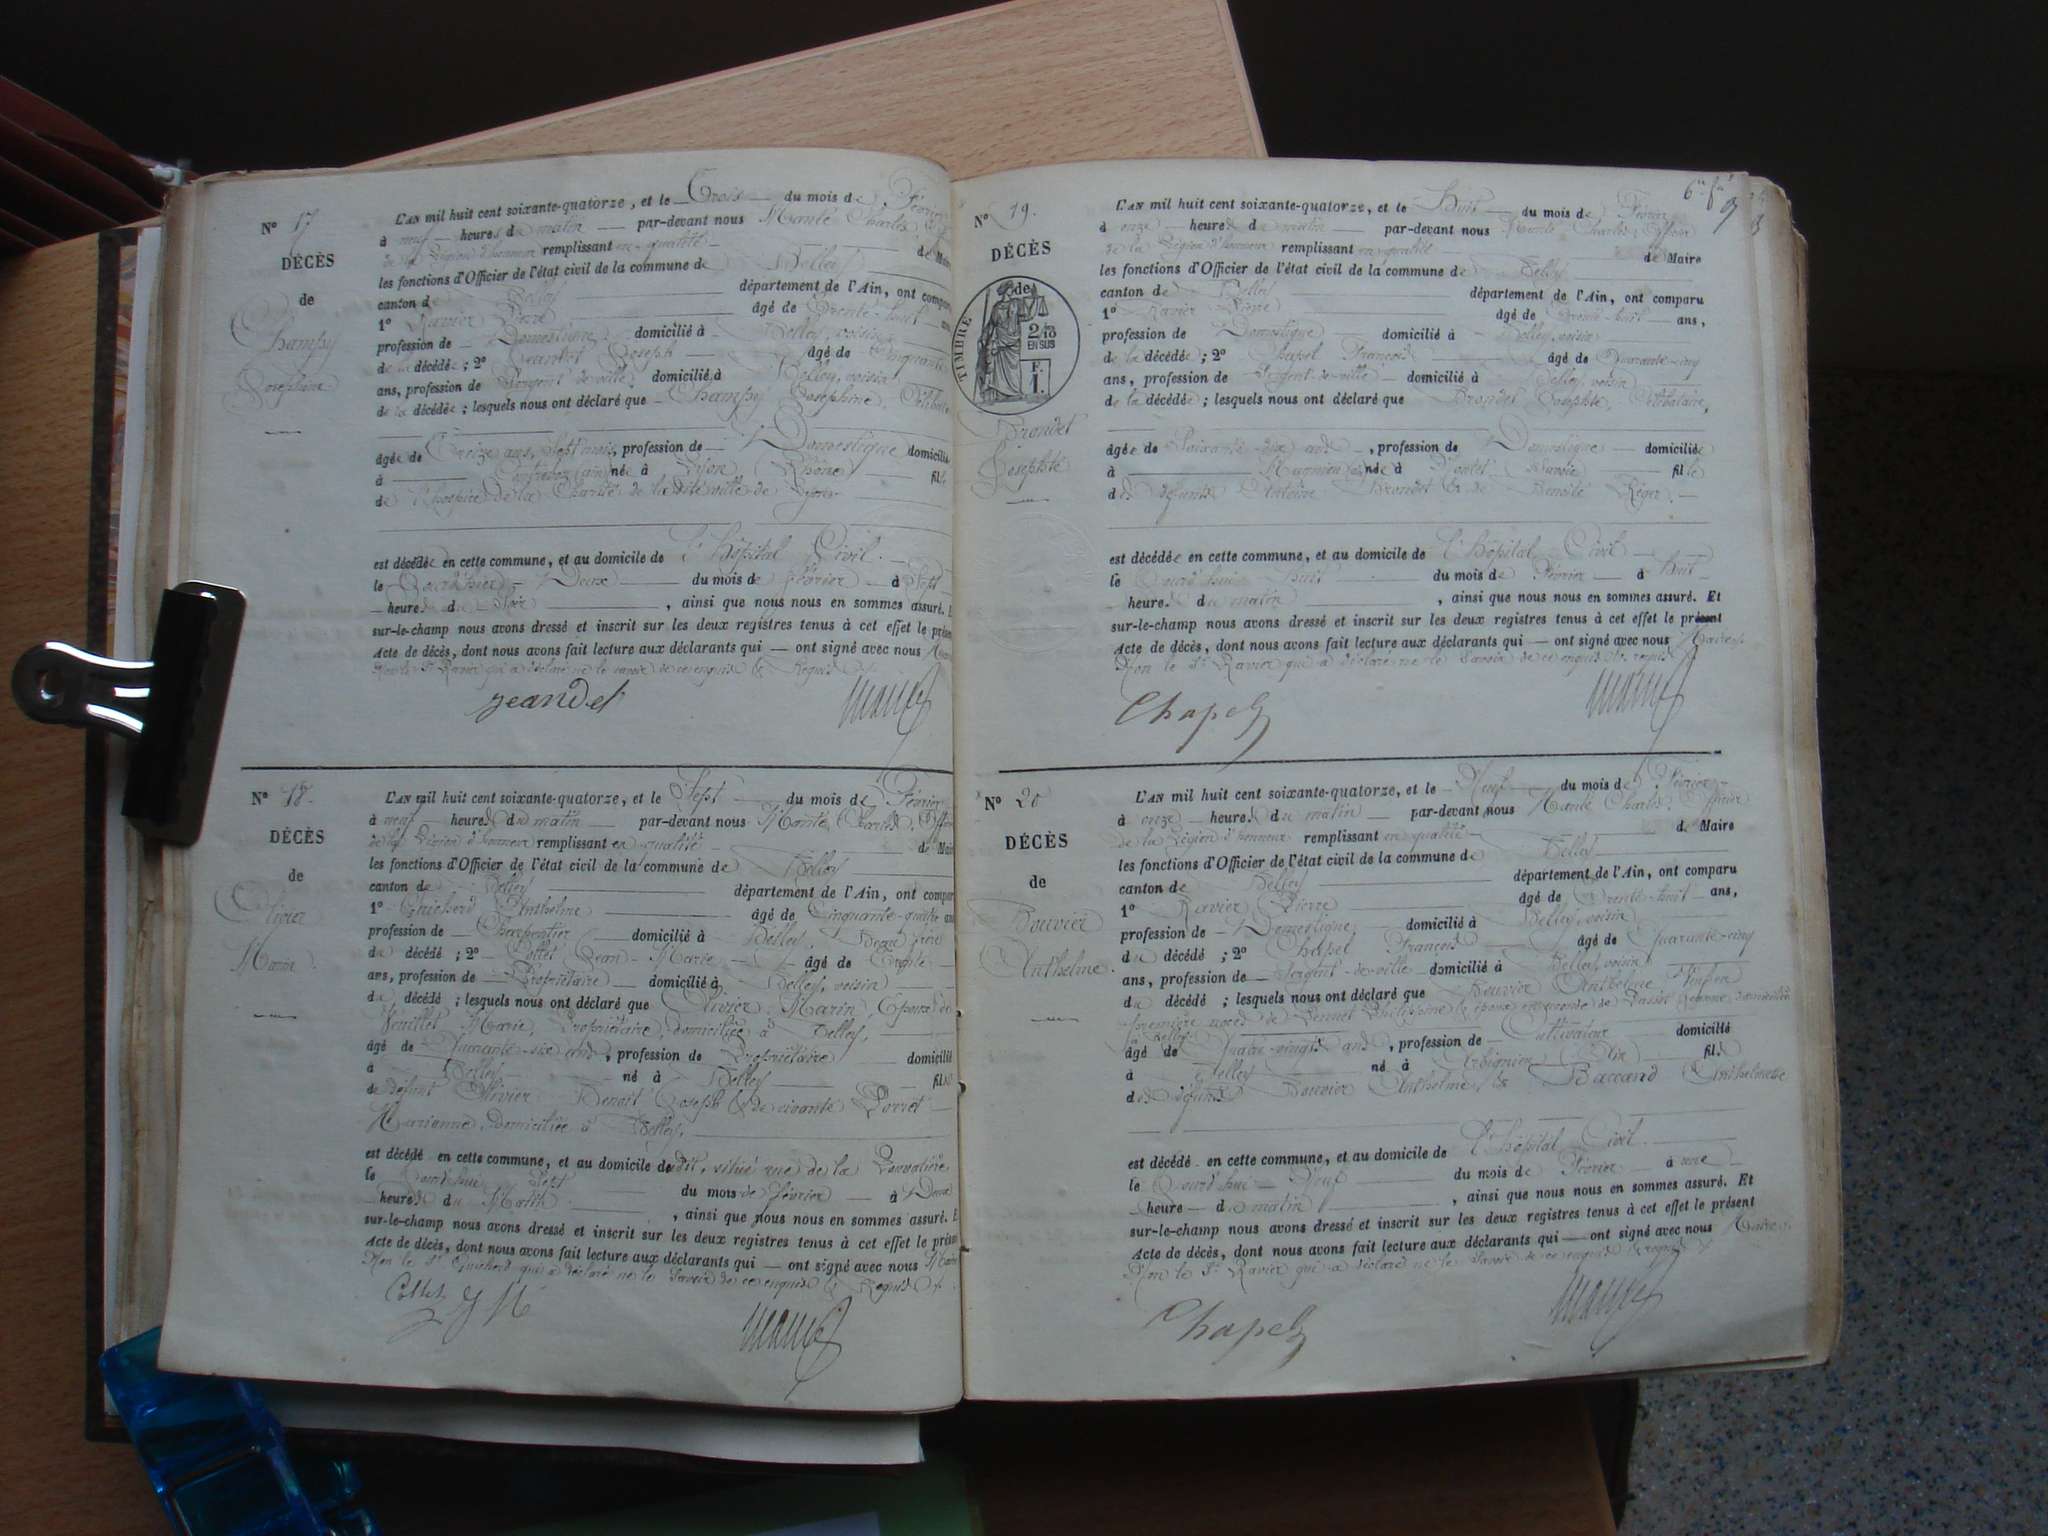 N° 17
DÉCÈS
de
Champy
Joséphine
L'AN mil huit cent soixante-quatorze, et le Trois du mois de Février
à neuf heures du matin par-devant nous Manté Charles
de la Légion d'honneur remplissant en qualité de Maire
les fonctions d'Officier de l'état civil de la commune de Belley
canton de Belley département de l'Ain, ont comparu
1° Ravier Pierre âgé de Trente-huit ans
profession de Domestique domicilié à Belley, voisin
de la décédée ; 2° Jeandet Joseph âgé de Cinquante
ans, profession de Sergent de ville domicilié à Belley, voisin
de la décédée ; lesquels nous ont déclaré que Champy Joséphine, Célibataire
âgée de Treize ans, Sept mois, profession de Domestique domiciliée
à (Ain) née à Lyon (Rhône) fille
de l'hospice de la Charité de la dite ville de Lyon
est décédée en cette commune, et au domicile de l'hôpital Civil
le Deux du mois de Février à Sept
heures du Soir , ainsi que nous nous en sommes assuré. Et
sur-le-champ nous avons dressé et inscrit sur les deux registres tenus à cet effet le présent
Acte de décès, dont nous avons fait lecture aux déclarants qui — ont signé avec nous Maire
Non le Sr Ravier qui a déclaré ne le savoir de ce enquis & Requis
Jeandet Manté
N° 18.
DÉCÈS
de
Olivier
Marin.
L'AN mil huit cent soixante-quatorze, et le Sept du mois de Février
à neuf heures du matin par-devant nous Manté Charles, Officier
de la Légion d'honneur remplissant en qualité de Maire
les fonctions d'Officier de l'état civil de la commune de Belley
canton de Belley département de l'Ain, ont comparu
1° Guicherd Anthelme âgé de Cinquante-quatre ans
profession de Charpentier domicilié à Belley, Beau frère
du décédé ; 2° Collet Jean-Marie âgé de Trente
ans, profession de Propriétaire domicilié à Belley, voisin
du décédé ; lesquels nous ont déclaré que Olivier Marin, Epoux de
Marie, Propriétaire, domiciliée à Belley,
âgé de Quarante-six ans, profession de Propriétaire domicilié
à Belley né à Belley fils
de défunt Olivier Benoit Joseph & de vivante Porret
Marianne, domiciliée à Belley,
est décédé en cette commune, et au domicile dudit, situé rue de la
le Jourd'hui Sept du mois de Février à Deux
heures du Matin , ainsi que nous nous en sommes assuré. Et
sur-le-champ nous avons dressé et inscrit sur les deux registres tenus à cet effet le présent
Acte de décès, dont nous avons fait lecture aux déclarants qui — ont signé avec nous Maire
Non le Sr Guicherd qui a déclaré ne le Savoir de ce enquis & Requis
Collet Manté
N° 19.
DÉCÈS
de
TIMBRE
2/10
EN SUS
F.
1.
Brondet
Josephte
L'AN mil huit cent soixante-quatorze, et le Huit du mois de Février
à onze heures du matin par-devant nous Manté Charles, Officier
de la Légion d'honneur remplissant en qualité de Maire
les fonctions d'Officier de l'état civil de la commune de Belley
canton de Belley département de l'Ain, ont comparu
1° Ravier Pierre âgé de Trente-huit ans,
profession de Domestique domicilié à Belley, voisin
de la décédée ; 2° Chapel François âgé de Quarante-cinq
ans, profession de Sergent-de-ville domicilié à Belley, voisin
de la décédée ; lesquels nous ont déclaré que Brondet Josephte, Célibataire,
âgée de Soixante-dix ans , profession de Domestique domiciliée
à née à (Savoie) fille
des défunts Antoine Brondet & de Benoîte Réger.
est décédée en cette commune, et au domicile de l'hôpital Civil
le Jourd'hui huit du mois de Février à huit
heures du matin , ainsi que nous nous en sommes assuré. Et
sur-le-champ nous avons dressé et inscrit sur les deux registres tenus à cet effet le présent
Acte de décès, dont nous avons fait lecture aux déclarants qui — ont signé avec nous Maire
Non le Sr Ravier qui a déclaré ne le Savoir de ce enquis & requis
Chapel Manté
N° 20
DÉCÈS
de
Bouvier
Anthelme.
L'AN mil huit cent soixante-quatorze, et le Neuf du mois de Février
à onze heures du matin par-devant nous Manté Charles, Officier
de la Légion d'honneur remplissant en qualité de Maire
les fonctions d'Officier de l'état civil de la commune de Belley
canton de Belley département de l'Ain, ont comparu
1° Ravier Pierre âgé de Trente-huit ans,
profession de Domestique domicilié à Belley, voisin
du décédé ; 2° Chapel François âgé de Quarante-cinq
ans, profession de Sergent-de-ville domicilié à Belley, voisin
du décédé ; lesquels nous ont déclaré que Bouvier Anthelme
première noces de & époux en seconde de Jeanne domiciliée
à Belley
âgé de Quatre-vingts ans , profession de Cultivateur domicilié
à Belley né à Arbignieu (Ain) fils
des défunts Bouvier Anthelme & Baccand Anthelmette
est décédé en cette commune, et au domicile de l'hôpital Civil
le Jourd'hui Neuf du mois de Février à une
heure du matin , ainsi que nous nous en sommes assuré. Et
sur-le-champ nous avons dressé et inscrit sur les deux registres tenus à cet effet le présent
Acte de décès, dont nous avons fait lecture aux déclarants qui — ont signé avec nous Maire
Non le Sr Ravier qui a déclaré ne le Savoir de ce enquis & requis
Chapel Manté